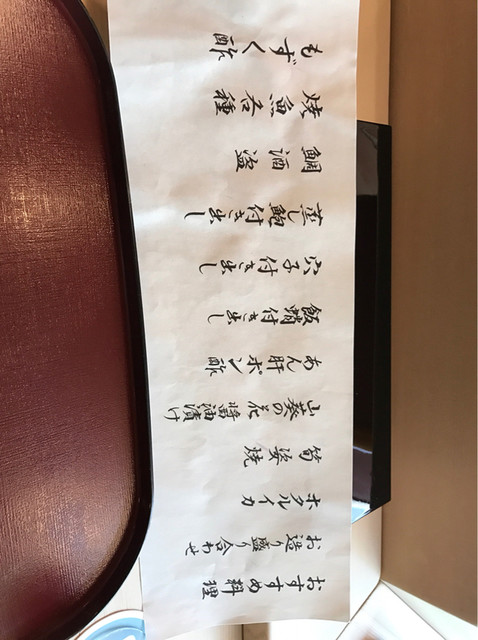 おすすめ料理
お造り盛り合わせ
ホタルイカ
筍姿焼
山葵の花醤油漬け
あん肝ポン酢
飯蛸付き出し
穴子付き出し
蒸し鮑付き出し
鯛酒盗
焼魚各種
もずく酢